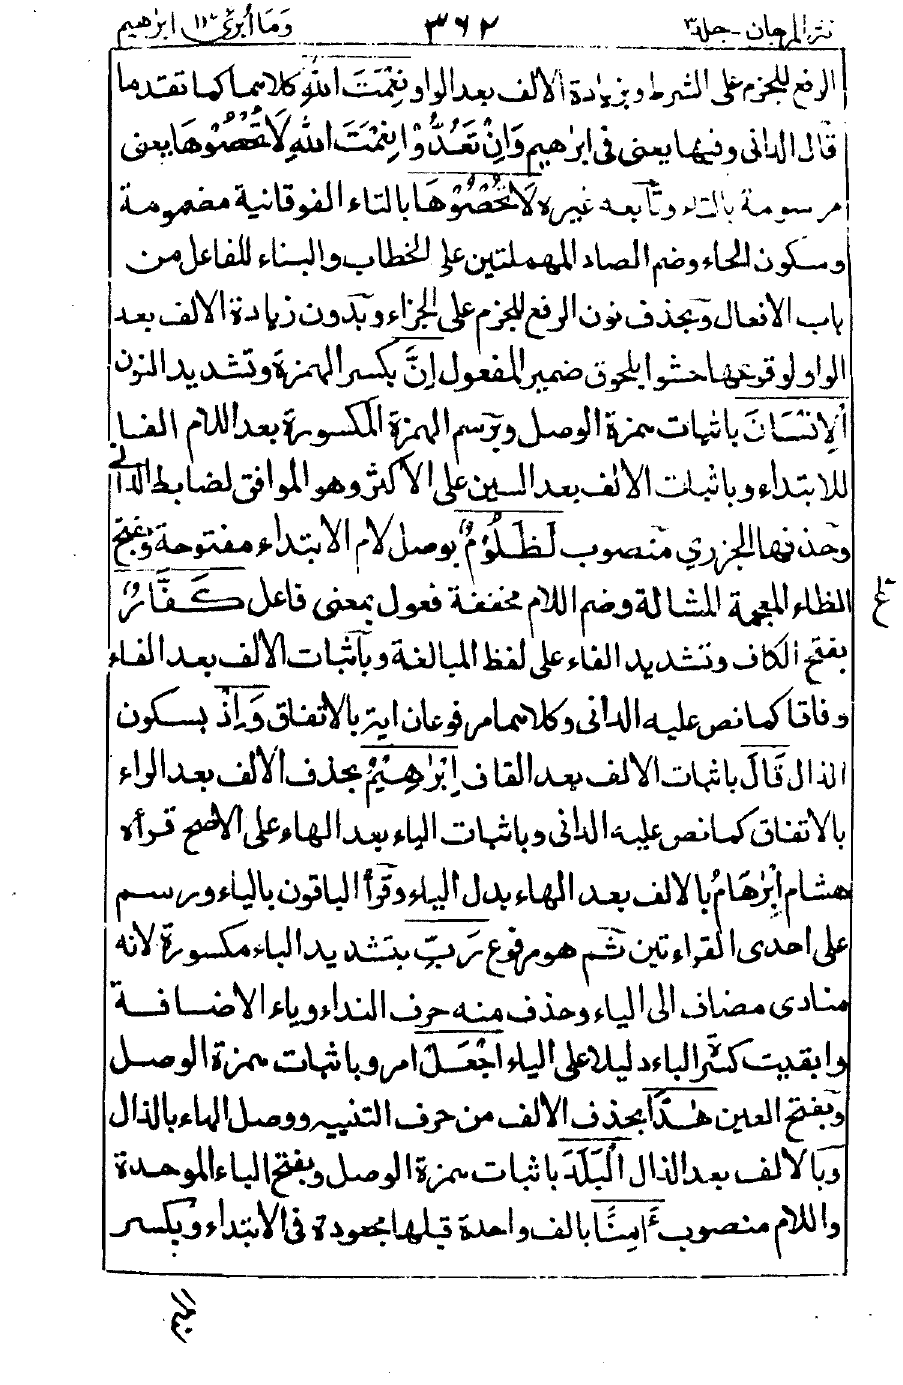 نثر المرجان - جلد ٣ ٣٦٢ وَمَا أُبَرِّئُ ١٣ ابرٰهيم
الرفع للجزم على الشرط وبزيادة الالف بعد الواو نِعْمَتَ اللّٰهِ كلاهما كما تقدما
قال الدانى وفيها يعنى فى ابرٰهيم وَاِنْ تَعُدُّوْا نِعْمَتَ اللّٰهِ لَا تُحْصُوْهَا يعنى
مرسومة بالتاء وتابعه غيره لَا تُحْصُوْهَا بالتاء الفوقانية مضمومة
وسكون الحاء وضم الصاد المهملتين على الخطاب والبناء للفاعل من
باب الافعال وبحذف نون الرفع للجزم على الجزاء وبدون زيادة الالف بعد
الواو لوقوعها حشوا بلحوق ضمير المفعول اِنَّ بكسر الهمزة وتشديد النون
اَلْاِنْسَانَ باثبات همزة الوصل وبرسم الهمزة المكسورة بعد اللام الفا
للابتداء وباثبات الالف بعد السين على الاكثر وهو الموافق لضابط الدانى
وحذفها الجزري منصوب لَظَلُوْمٌ بوصل لام الابتداء مفتوحة وبفتح
الظاء المعجمة المشالة وضم اللام مخففة فعول بمعنى فاعل كَفَّارٌ
بفتح الكاف وتشديد الفاء على لفظ المبالغة وباثبات الالف بعد الفاء
وفاقا كما نص عليه الدانى وكلاهما مرفوعان اية بالاتفاق وَاِذْ بسكون
الذال قَالَ باثبات الالف بعد القاف اِبْرٰهِيْمُ بحذف الالف بعد الراء
بالاتفاق كما نص عليه الدانى وباثبات الياء بعد الهاء على الاصح قرأه
هشام اِبْرٰهَامُ بالالف بعد الهاء بدل الياء وقرأ الباقون بالياء ورسم
على احدى القراءتين ثم هو مرفوع رَبِّ بتشديد الباء مكسورة لانه
منادى مضاف الى الياء وحذف منه حرف النداء وياء الاضافة
وابقيت كسرة الباء دليلا على الياء اجْعَلْ امر وباثبات همزة الوصل
وبفتح العين هٰذَا بحذف الالف من حرف التنبيه ووصل الهاء بالذال
وبالالف بعد الذال الْبَلَدَ باثبات همزة الوصل وبفتح الباء الموحدة
واللام منصوب ءَامِنًا بالف واحدة قبلها مجعودة فى الابتداء وبكسر